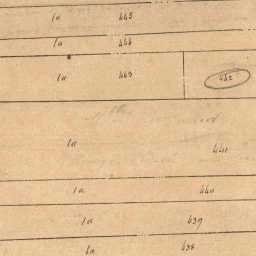 1a 445
1a 444
1a 443 442
1a 441
1a 440
1a 439
1a 438